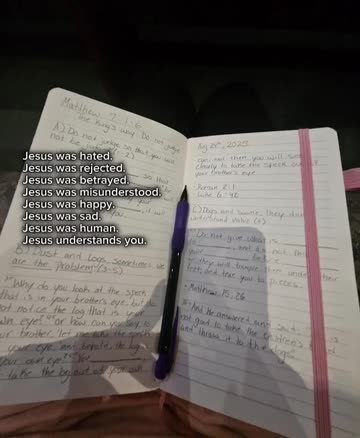 Matthew 7:1-6
the King's Way: Do not judge
A) Do not judge so that you will
not be judged
Jesus was hated.
Jesus was rejected.
Jesus was betrayed.
Jesus was misunderstood.
Jesus was happy.
Jesus was sad.
Jesus was human.
Jesus understands you.
B) Dust and Logs, sometimes we
are the problem (3-5)
"Why do you look at the speck
that is in your brother's eye, but do
not notice the log that is in your
own eye? or how can you say to
your brother, let me take the speck
your eye, and behold, the log
your own eye? You
take the log out of your own
Aug 20th, 2025
eye, and then you will see
clearly to take the speck out of
your brother's eye
Roman 2:1
Luke 6:42
C) Dogs and swine, they don't
understand value
Do not give what is
and do not
they will trample them under their
feet, and tear you to pieces.
- Matthew 15:26
"And he answered and said, it is
not good to take the children's bread
and throw it to the dogs"